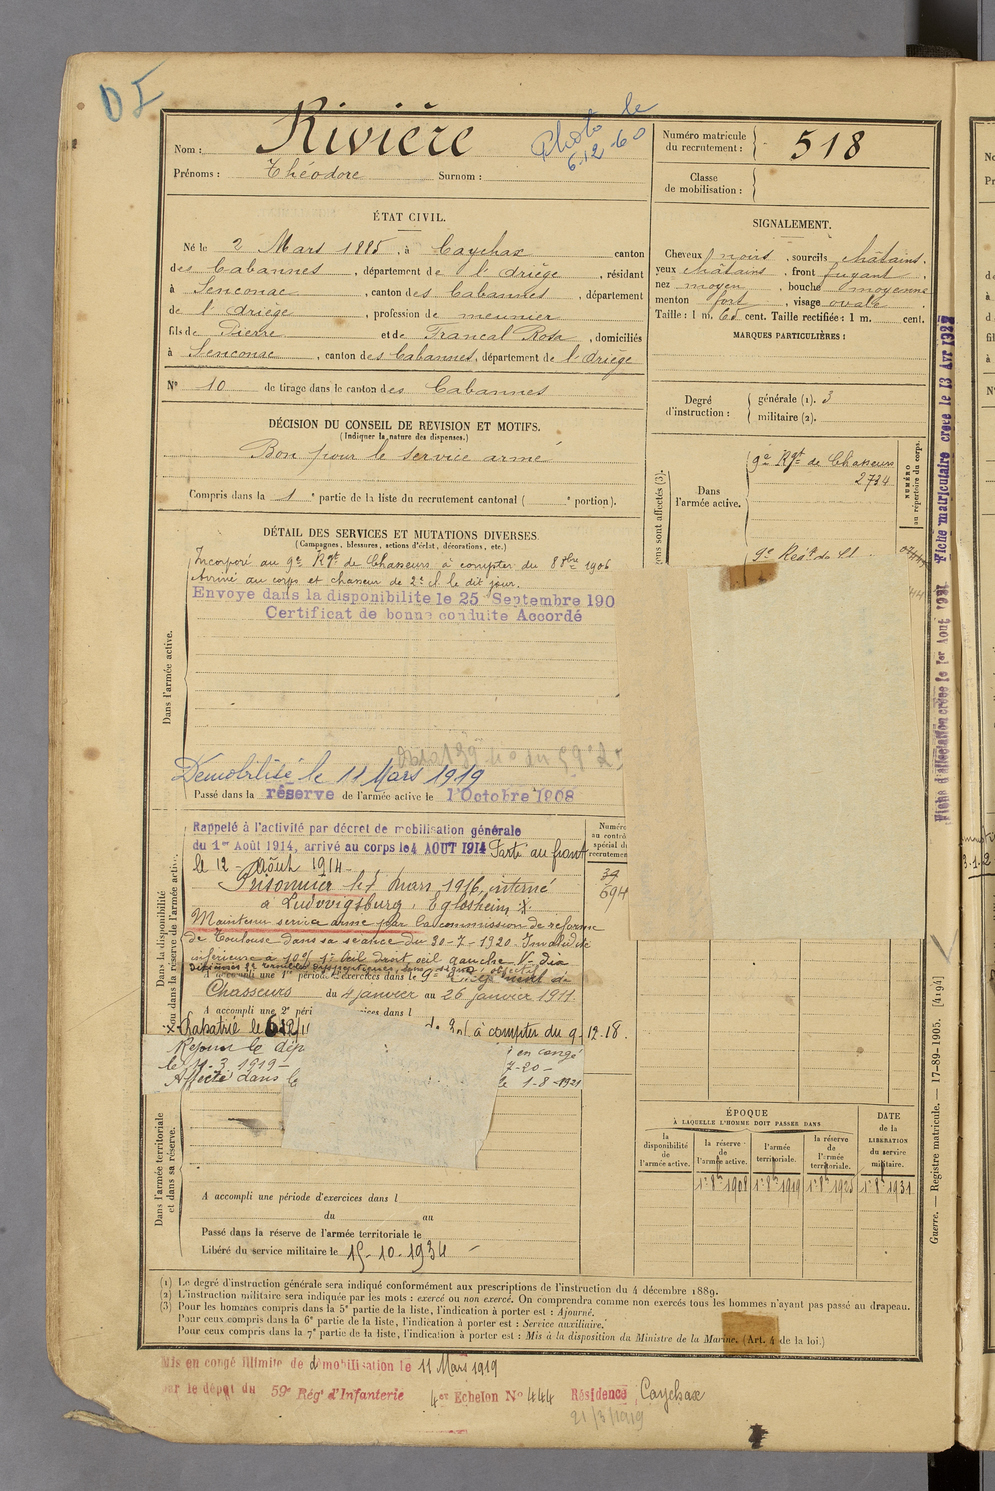 OI
Photo le
6-12-60
Nom : Rivière
Prénoms : Théodore Surnom :
Numéro matricule
du recrutement : 518
Classe
de mobilisation :
ÉTAT CIVIL.
Né le 2 Mars 1885, à Caychax canton
des Cabannes, département de l'Ariège, résidant
à Senconac, canton des Cabannes, département
de l'Ariège, profession de meunier
fils de Pierre et de Francal Rosa, domiciliés
à Senconac, canton des Cabannes, département de l'Ariège
N° 10 de tirage dans le canton des Cabannes
SIGNALEMENT.
Cheveux noirs, sourcils châtains.
yeux châtains, front fuyant,
nez moyen, bouche moyenne
menton fort, visage ovale.
Taille : 1 m. 65 cent. Taille rectifiée : 1 m. cent.
MARQUES PARTICULIÈRES :
Degré
d'instruction :
générale (1). 3
militaire (2).
DÉCISION DU CONSEIL DE REVISION ET MOTIFS.
(Indiquer la nature des dispenses.)
Bon pour le service armé
Compris dans la 1e partie de la liste du recrutement cantonal ( e portion).
Dans
l'armée active.
9e Rgt de Chasseurs
2734
NUMÉRO
au répertoire du corps.
9e Regt de
DÉTAIL DES SERVICES ET MUTATIONS DIVERSES.
(Campagnes, blessures, actions d'éclat, décorations, etc.)
Dans l'armée active.
Incorporé au 9e Rgt de Chasseurs à compter du 8 8bre 1906
Arrivé au corps et chasseur de 2e cl. le dit jour.
Envoye dans la disponibilite le 25 Septembre 190
Certificat de bonne conduite Accordé
Démobilisé le 11 Mars 1919
Passé dans la réserve de l'armée active le 1 Octobre 1908
Dans la disponibilité
ou dans la réserve de l'armée active.
Rappelé à l'activité par décret de mobilisation générale
du 1er Août 1914, arrivé au corps le 4 AOUT 1914 Parti au front
le 12 Août 1914
Prisonnier le 8 mars 1916, interné
à Ludwigsburg, Eglosheim
Maintenu service armé par la commission de réforme
de Toulouse dans sa séance du 20-7-1920. Invalidité
inférieure à 10% 1° Œil droit, œil gauche
A accompli une 1re période d'exercices dans le 9e Régiment de
Chasseurs du 4 janvier au 26 janvier 1911.
A accompli une 2e péri ices dans l
Rapatrié le à compter du 9-12-18.
Rejoint le dép
en congé
le 11-3 1919-
7-20-
Affecté dans le
le 1-8-1921
Numéro
au contrôle
spécial du
recrutement
39
694
Dans l'armée territoriale
et dans sa réserve.
A accompli une période d'exercices dans l
du au
Passé dans la réserve de l'armée territoriale le
Libéré du service militaire le 15-10-1934
ÉPOQUE
À LAQUELLE L'HOMME DOIT PASSER DANS
la disponibilité de l'armée active.
la réserve de l'armée active.
l'armée territoriale.
la réserve de l'armée territoriale.
DATE de la LIBÉRATION du service militaire.
1r 8bre 1908 1r 8bre 1919 1r 8bre 1925 1r 8bre 1931
(1) Le degré d'instruction générale sera indiqué conformément aux prescriptions de l'instruction du 4 décembre 1889.
(2) L'instruction militaire sera indiquée par les mots : exercé ou non exercé. On comprendra comme non exercés tous les hommes n'ayant pas passé au drapeau.
(3) Pour les hommes compris dans la 5e partie de la liste, l'indication à porter est : Ajourné.
Pour ceux compris dans la 6e partie de la liste, l'indication à porter est : Service auxiliaire.
Pour ceux compris dans la 7e partie de la liste, l'indication à porter est : Mis à la disposition du Ministre de la Marine. (Art. 4 de la loi.)
Mis en congé illimité de démobilisation le 11 Mars 1919
par le dépot du 59e Rég' d'Infanterie 4er Echelon N° 444 Résidence Caychax
21/3/1919
Fiche d'affectation créée le 1er Aout 1921 Fiche matriculaire créée le 13 Avr 1922
Guerre. — Registre matricule. — 17-89-1905. [4194]